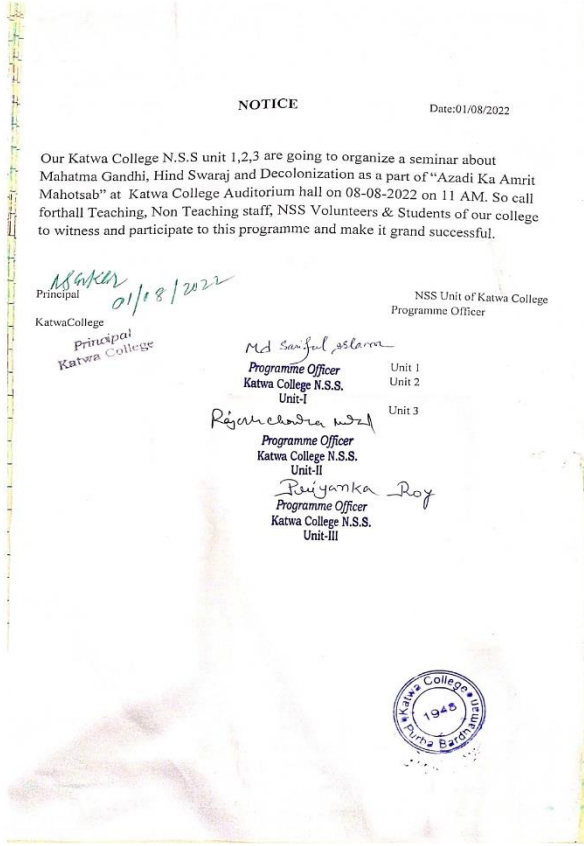 NOTICE
Date:01/08/2022
Our Katwa College N.S.S unit 1,2,3 are going to organize a seminar about
Mahatma Gandhi, Hind Swaraj and Decolonization as a part of “Azadi Ka Amrit
Mahotsab” at Katwa College Auditorium hall on 08-08-2022 on 11 AM. So call
forthall Teaching, Non Teaching staff, NSS Volunteers & Students of our college
to witness and participate to this programme and make it grand successful.
01/08/2022
Principal
KatwaCollege
Principal
Katwa College
NSS Unit of Katwa College
Programme Officer
Md Sariful Islam
Programme Officer
Katwa College N.S.S.
Unit-I
Unit 1
Unit 2
Unit 3
Programme Officer
Katwa College N.S.S.
Unit-II
Priyanka Roy
Programme Officer
Katwa College N.S.S.
Unit-III
Katwa College
1948
Purba Bardhaman